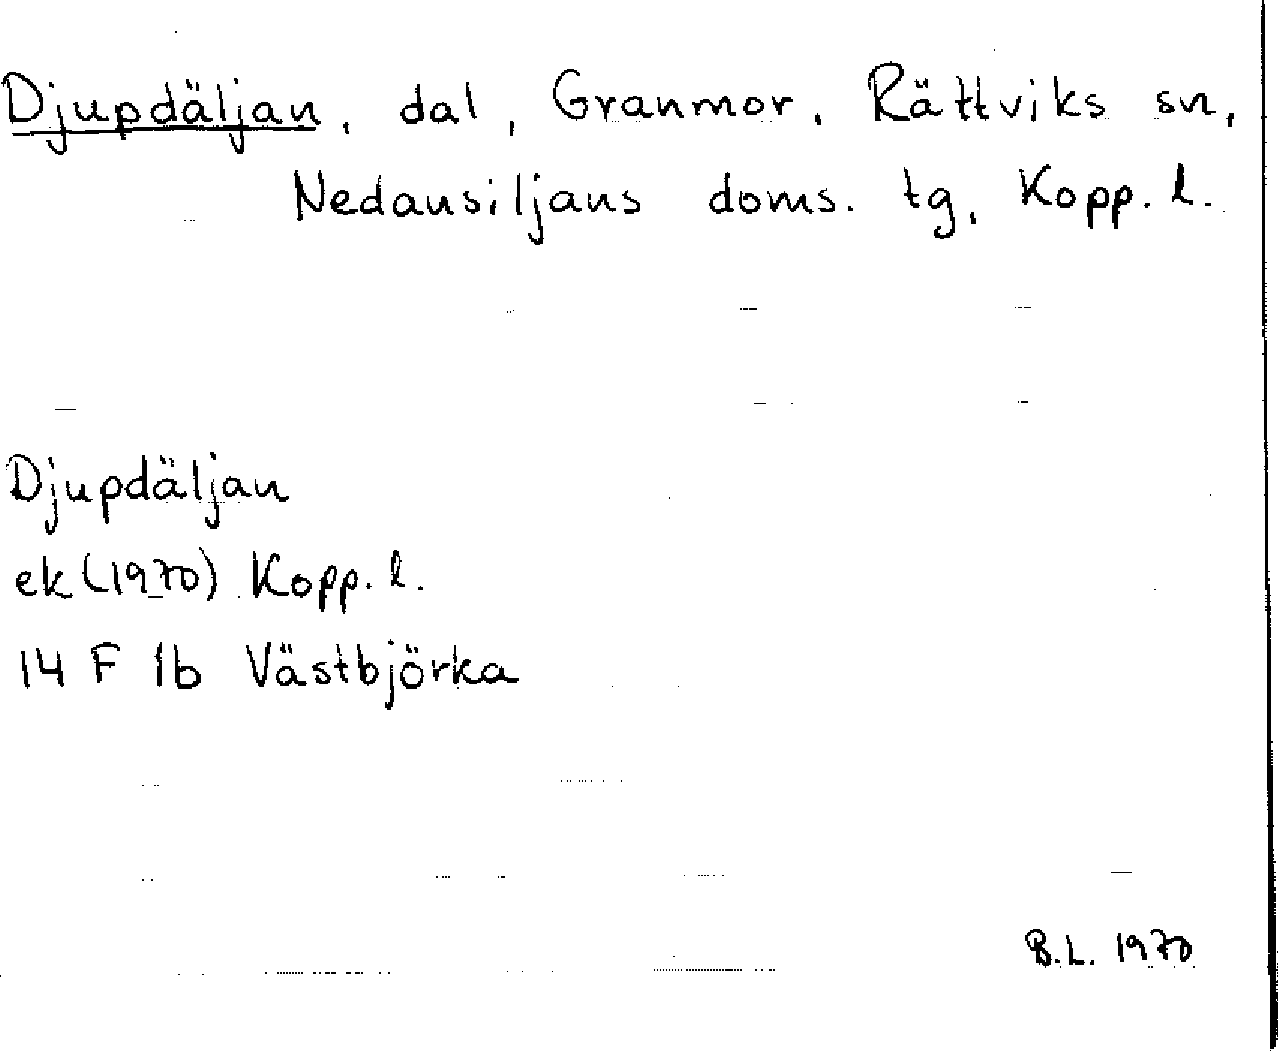 Djupdäljan, dal, Granmor, Rättviks sn,
Nedansiljans doms. tg, Kopp. l.
Djupdäljan
ek (1970) Kopp. l.
14 F 1b Västbjörka
B.L. 1970